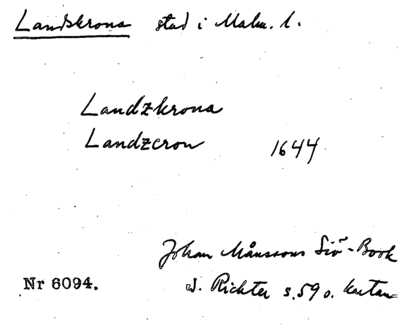 Landskrona stad i Malm. l.
Landzkrona
Landzcron 1644
Johan Månssons Siö-Book
J. Richter s. 59 o. kartan
Nr 6094.